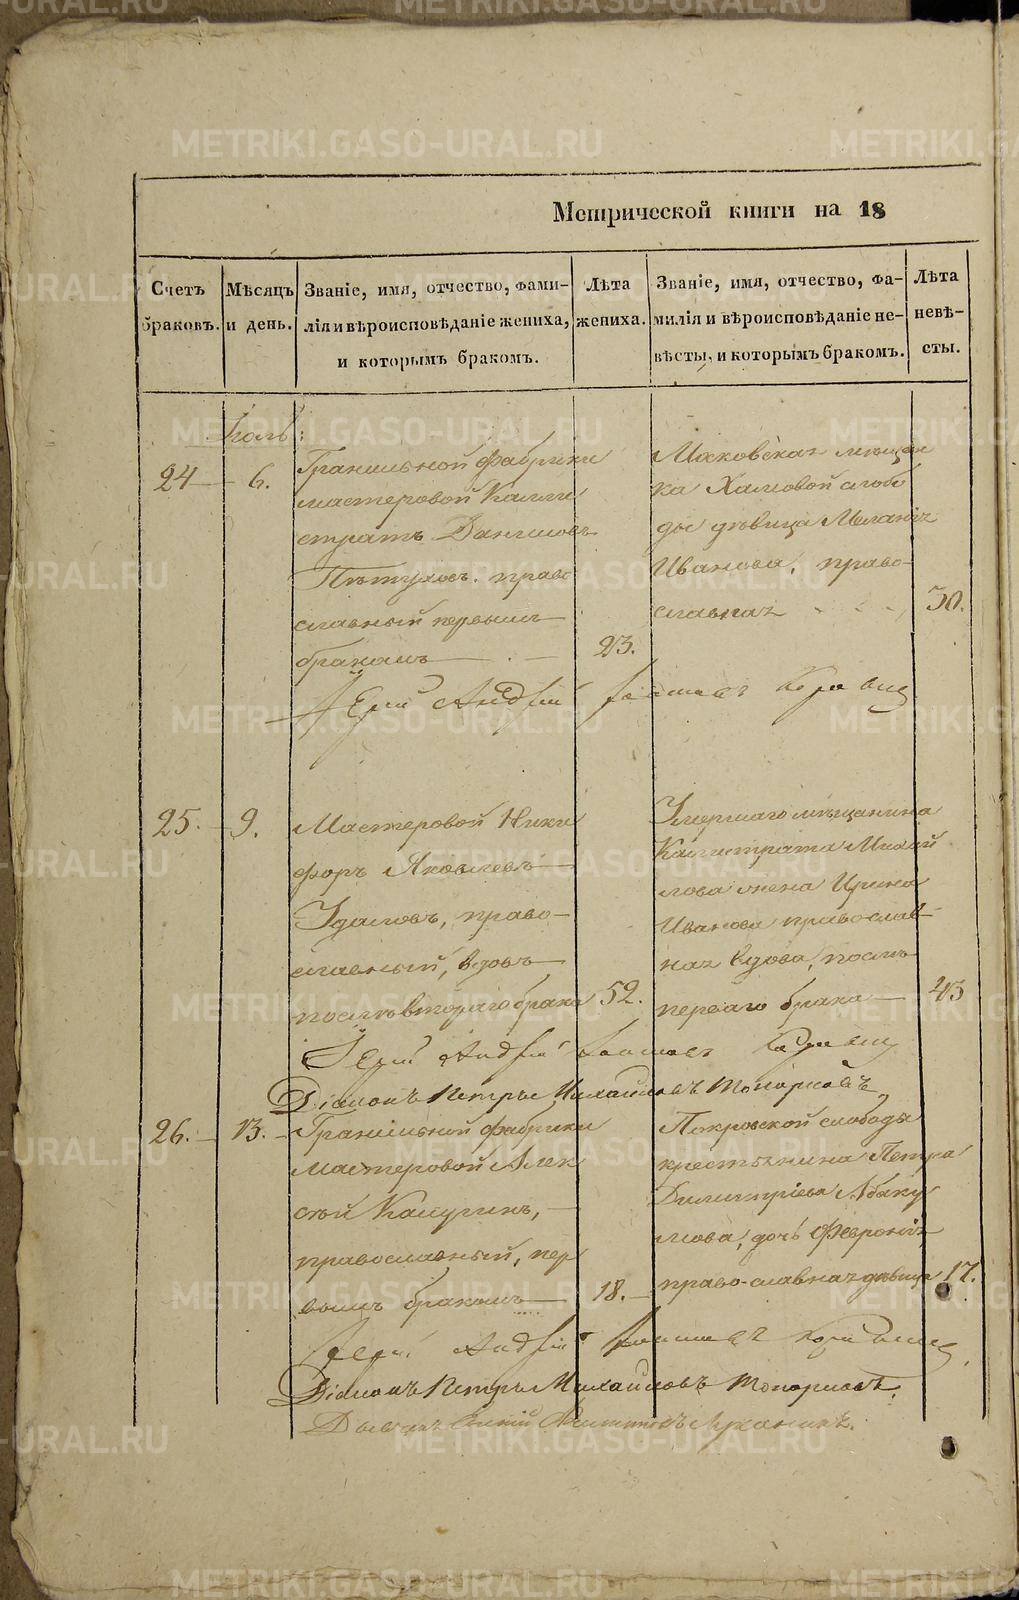 METRIKI.GASO-URAL.RU
Метрической книги на 18
Счетъ браковъ.
Мѣсяцъ и день.
Званіе, имя, отчество, фами-
лія и вѣроисповѣданіе жениха,
и которымъ бракомъ.
Лѣта жениха.
Званіе, имя, отчество, фа-
милія и вѣроисповѣданіе не-
вѣсты, и которымъ бракомъ.
Лѣта невѣ-
сты.
Іюль:
24 — 6.
Гранильной фабрики
мастеровой Калли
стратъ Даниловъ
Пѣтуховъ. право
славный первымъ
бракомъ —
23.
ка
ды дѣвица Меланія
Иванова, право-
славная
30.
Іерей Андрей
25. — 9.
Мастеровой Ники
форъ Яковлевъ —
Удаловъ, право—
славный, вдовъ
послѣ втораго брака
52.
Умершаго мѣщанина
Калистрата Михай
лова жена Ирина
Иванова православ-
ная вдова, послѣ
перваго брака —
45
Іерей Андрей
Діаконъ Петръ Михайловъ Топорковъ,
26. — 13. —
Гранильной фабрики
мастеровой Алек
сѣй Качуринъ, —
православный, пер
вымъ бракомъ —
18. —
Покровской слободы
крестьянина Петра
Димитріева Абаку
мова, дочь Февронія
православная дѣвица
17.
Іерей Андрей
Діаконъ Петръ Михайловъ Топорковъ.